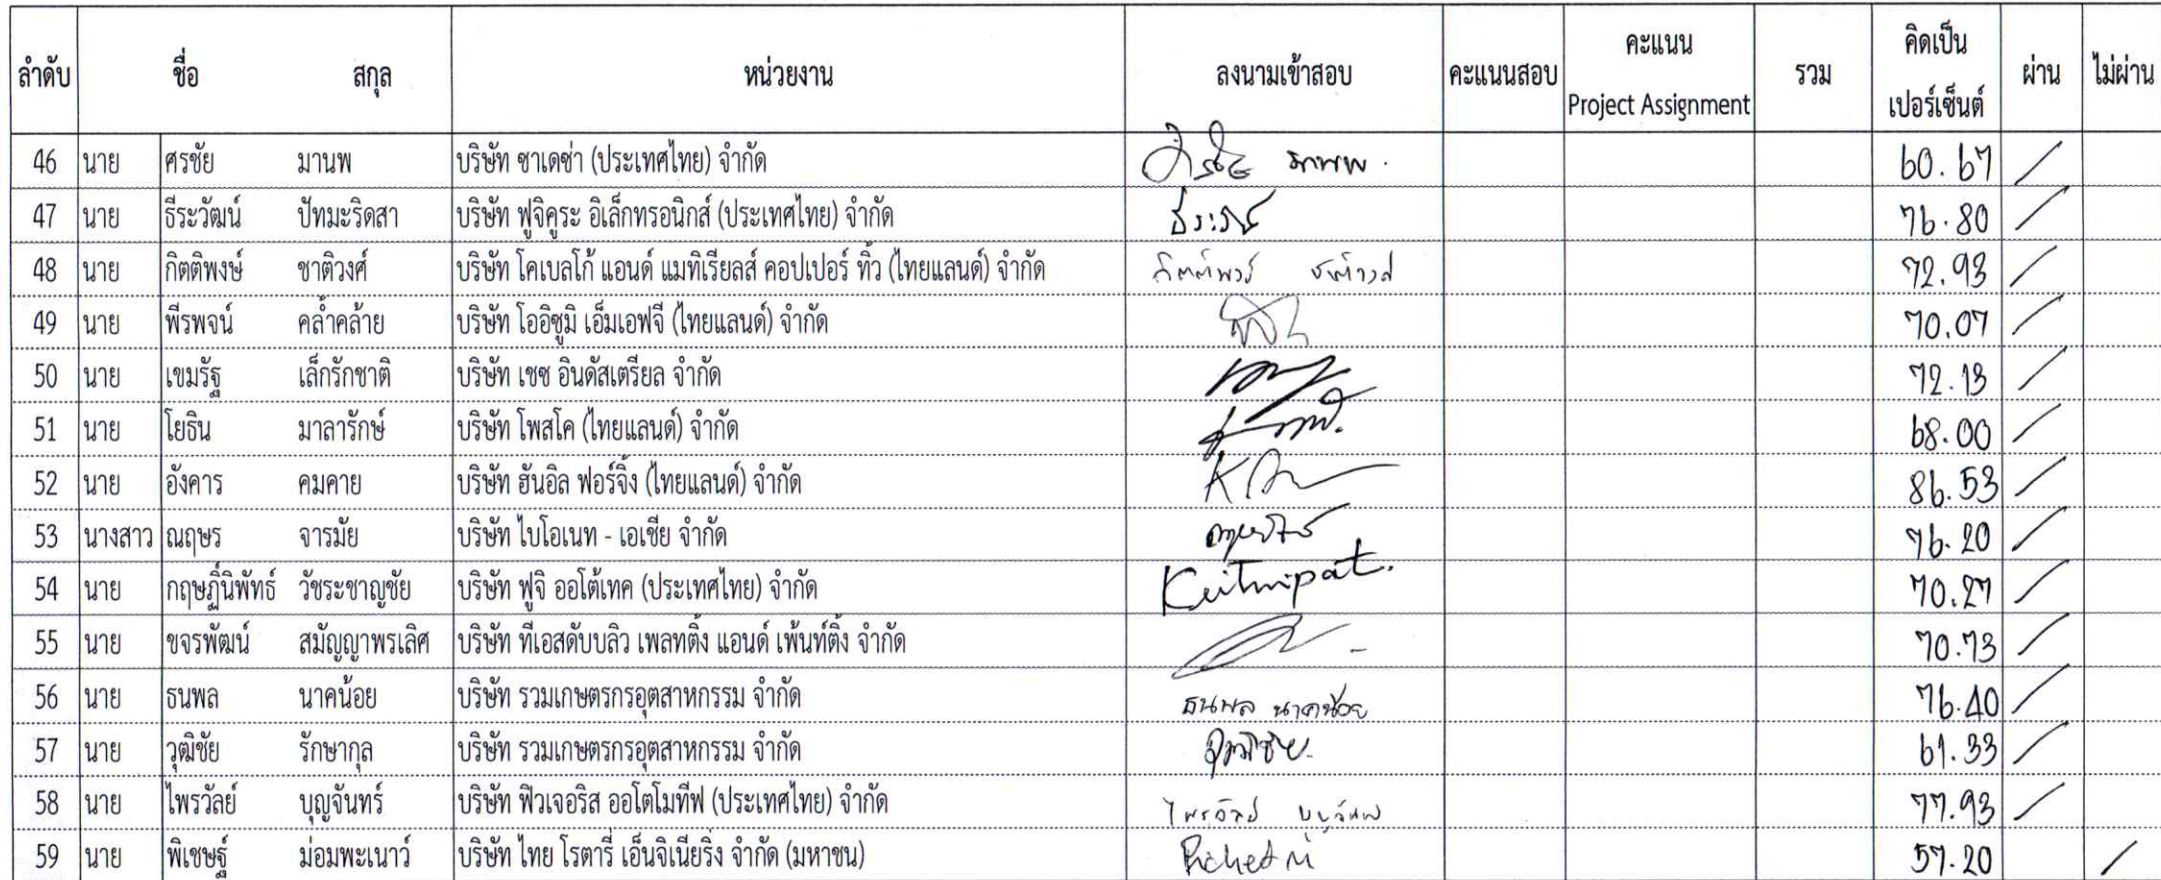 ลำดับ ชื่อ สกุล หน่วยงาน ลงนามเข้าสอบ คะแนนสอบ คะแนน Project Assignment รวม คิดเป็น เปอร์เซ็นต์ ผ่าน ไม่ผ่าน
46 นาย ศรชัย มานพ บริษัท ซาเดซ่า (ประเทศไทย) จำกัด 60.67 /
47 นาย ธีระวัฒน์ ปัทมะริดสา บริษัท ฟูจิคูระ อิเล็กทรอนิกส์ (ประเทศไทย) จำกัด 76.80 /
48 นาย กิตติพงษ์ ชาติวงศ์ บริษัท โคเบลโก้ แอนด์ แมทิเรียลส์ คอปเปอร์ ทิ้ว (ไทยแลนด์) จำกัด 72.93 /
49 นาย พีรพจน์ คล้ำคล้าย บริษัท โออิซูมิ เอ็มเอฟจี (ไทยแลนด์) จำกัด 70.07 /
50 นาย เขมรัฐ เล็กรักชาติ บริษัท เชช อินดัสเตรียล จำกัด 72.13 /
51 นาย โยธิน มาลารักษ์ บริษัท โพสโค (ไทยแลนด์) จำกัด 68.00 /
52 นาย อังคาร คมคาย บริษัท ฮันอิล ฟอร์จิ้ง (ไทยแลนด์) จำกัด 86.53 /
53 นางสาว ณฤษร จารมัย บริษัท ไบโอเนท - เอเชีย จำกัด 76.20 /
54 นาย กฤษฏิ์นิพัทธ์ วัชระชาญชัย บริษัท ฟูจิ ออโต้เทค (ประเทศไทย) จำกัด 70.27 /
55 นาย ขจรพัฒน์ สมัญญาพรเลิศ บริษัท ทีเอสดับบลิว เพลทติ้ง แอนด์ เพ้นท์ติ้ง จำกัด 70.73 /
56 นาย ธนพล นาคน้อย บริษัท รวมเกษตรกรอุตสาหกรรม จำกัด ธนพล นาคน้อย 76.40 /
57 นาย วุฒิชัย รักษากุล บริษัท รวมเกษตรกรอุตสาหกรรม จำกัด วุฒิชัย 61.33 /
58 นาย ไพรวัลย์ บุญจันทร์ บริษัท ฟิวเจอริส ออโตโมทีฟ (ประเทศไทย) จำกัด 77.93 /
59 นาย พิเชษฐ์ ม่อมพะเนาว์ บริษัท ไทย โรตารี่ เอ็นจิเนียริ่ง จำกัด (มหาชน) 57.20 /